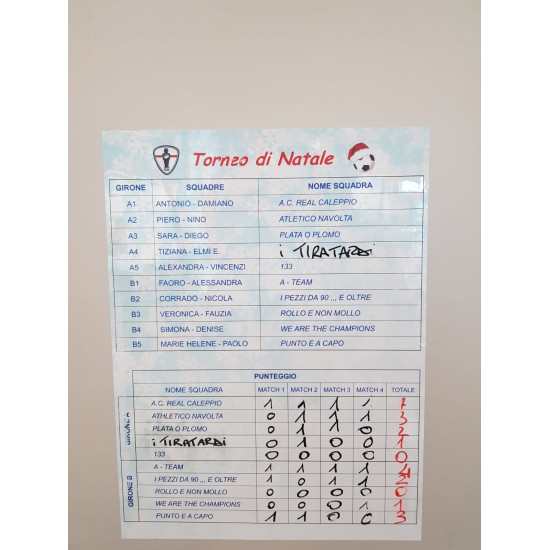 Torneo di Natale
GIRONE SQUADRE NOME SQUADRA
A1 ANTONIO - DAMIANO A.C. REAL CALEPPIO
A2 PIERO - NINO ATLETICO NAVOLTA
A3 SARA - DIEGO PLATA O PLOMO
A4 TIZIANA - ELMI E. i TIRATARDi
A5 ALEXANDRA - VINCENZI 133
B1 FAORO - ALESSANDRA A - TEAM
B2 CORRADO - NICOLA I PEZZI DA 90 ,,, E OLTRE
B3 VERONICA - FAUZIA ROLLO E NON MOLLO
B4 SIMONA - DENISE WE ARE THE CHAMPIONS
B5 MARIE HELENE - PAOLO PUNTO E A CAPO
PUNTEGGIO
NOME SQUADRA MATCH 1 MATCH 2 MATCH 3 MATCH 4 TOTALE
GIRONE A
A.C. REAL CALEPPIO 1 1 1 1
ATHLETICO NAVOLTA 0 1 1 1 3
PLATA O PLOMO 0 1 1 0 2
i TIRATARDi 0 1 0 0 1
133 0 0 0 0 0
GIRONE B
A - TEAM 1 1 1 1 4
I PEZZI DA 90 ,,, E OLTRE 1 0 1 2
ROLLO E NON MOLLO 0 0 0 0 0
WE ARE THE CHAMPIONS 0 0 1
PUNTO E A CAPO 1 1 0 3